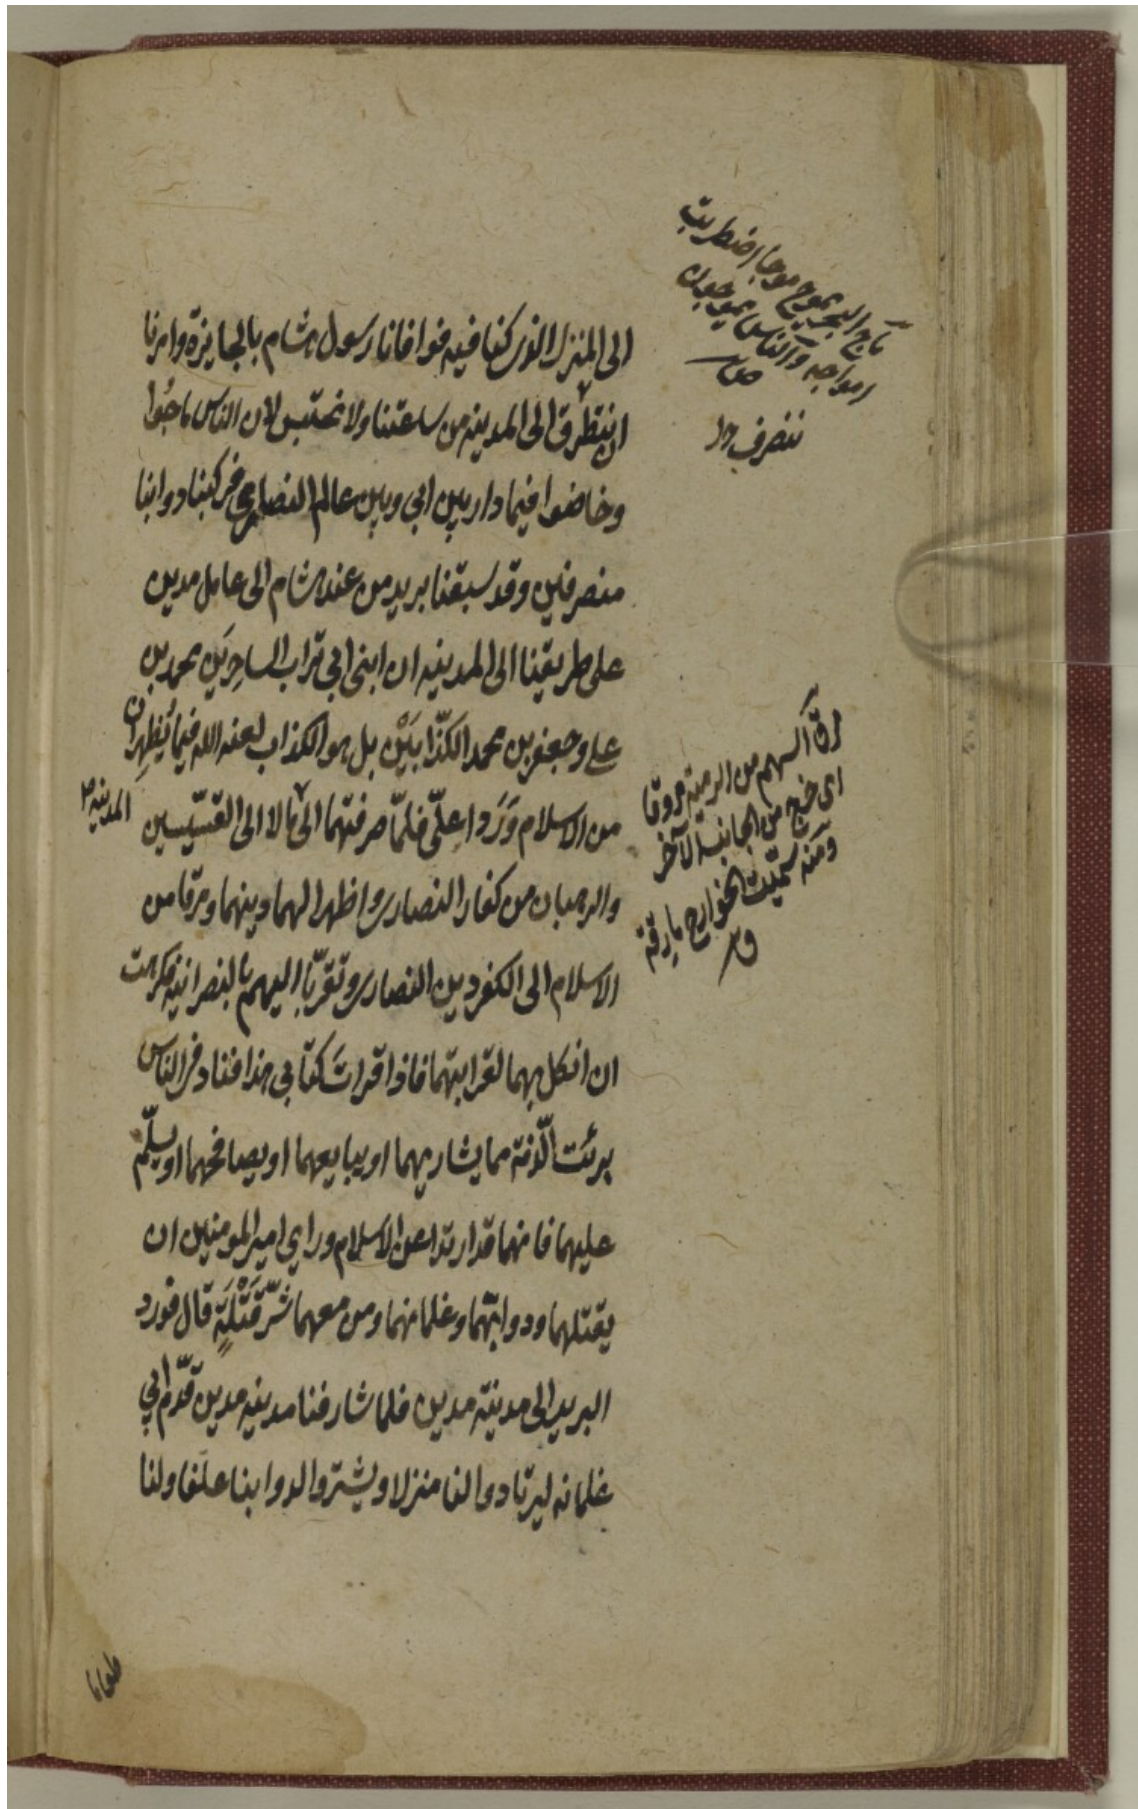 ماج البحر يموج موجا اضطربت
امواجه والناس يموجون
ص
ننصرف
الى المنزل الذى كنا فيه فوافانا رسول هشام بالجايزة وامرنا
ان الى المدينة من ساعتنا ولا نحتبس لان الناس ماجوا
وخاضوا فيما دار بين ابي وبين عالم النصارى فركبنا دوابنا
منصرفين وقد سبقنا بريد من عند هشام الى عامل مدين
على طريقنا الى المدينه ان ابنى ابي تراب الساحِرَين محمد بن
علي وجعفر بن محمد الكذّابَيْن بل هو الكذاب لعنه الله فيما يُظهِران
من الاسلام وَرَدا علىّ فلمّا صرفتهما الى مالا الى القسّيسين
المدينه
والرهبان من كفار النصارى واظهرا لهما دينهما ومرقا من
الاسلام الى الكفر دين النصارى وتقرّبا اليهم بالنصرانيه فكرهت
ان انكل بهما لقرابتهما فاذا قرات كتابى هذا فناد فى الناس
برئت الذّمة مما يشاريهما او يبايعهما او يصافحهما او يسلّم
عليهما فانهما قد ارتدا عن الاسلام وراى امير المومنين ان
يقتلهما ودوابّهما وغلمانهما ومن معهما شَرّ قَتْلَةٍ قال فورد
البريد الى مدينة مدين فلما شارفنا مدينه مدين قدّم ابي
غلمانه ليرتادوا لنا منزلا ويشتروا لدوابنا علفا ولنا
مرق السهم من الرمية مروقا
اى خرج من الجانب الآخر
ومنه سمّيت الخوارج مارقة
طعاما